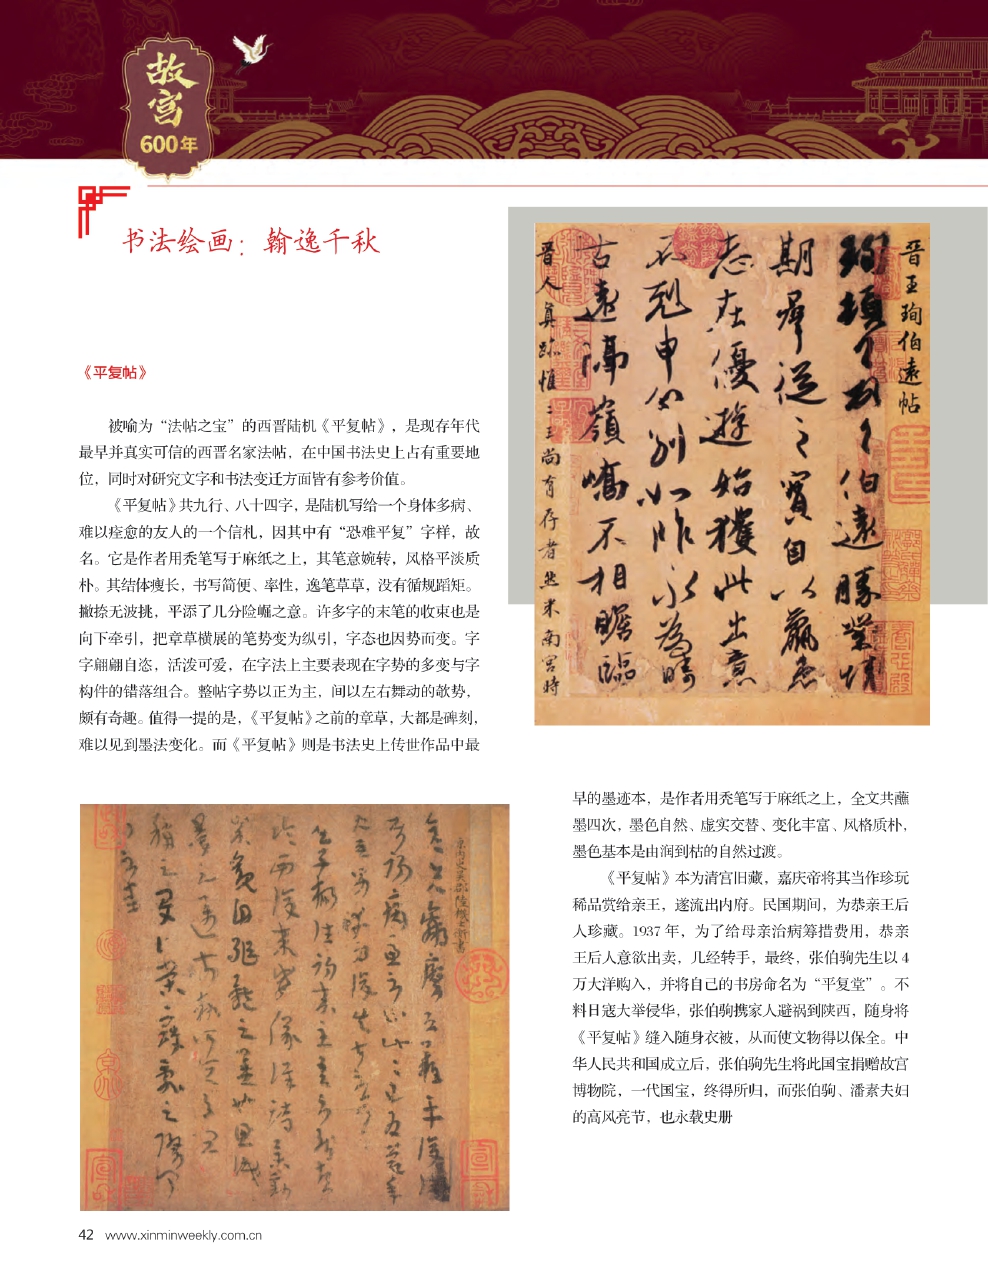 故宫
600年
书法绘画：翰逸千秋
《平复帖》
被喻为“法帖之宝”的西晋陆机《平复帖》，是现存年代
最早并真实可信的西晋名家法帖，在中国书法史上占有重要地
位，同时对研究文字和书法变迁方面皆有参考价值。
《平复帖》共九行、八十四字，是陆机写给一个身体多病、
难以痊愈的友人的一个信札，因其中有“恐难平复”字样，故
名。它是作者用秃笔写于麻纸之上，其笔意婉转，风格平淡质
朴。其结体瘦长，书写简便、率性，逸笔草草，没有循规蹈矩。
撇捺无波挑，平添了几分险崛之意。许多字的末笔的收束也是
向下牵引，把章草横展的笔势变为纵引，字态也因势而变。字
字翩翩自恣，活泼可爱，在字法上主要表现在字势的多变与字
构件的错落组合。整帖字势以正为主，间以左右舞动的欹势，
颇有奇趣。值得一提的是，《平复帖》之前的章草，大都是碑刻，
难以见到墨法变化。而《平复帖》则是书法史上传世作品中最
晋王珣伯遠帖
珣頓首頓首伯遠勝業情
期羣從之寶自以羸患
志在優遊始獲此出意
不剋申分別如昨永為疇
古遠隔嶺嶠不相瞻臨
晋人真跡惟二王尚有存者然米南宮時
早的墨迹本，是作者用秃笔写于麻纸之上，全文共蘸
墨四次，墨色自然、虚实交替、变化丰富、风格质朴，
墨色基本是由润到枯的自然过渡。
《平复帖》本为清宫旧藏，嘉庆帝将其当作珍玩
稀品赏给亲王，遂流出内府。民国期间，为恭亲王后
人珍藏。1937 年，为了给母亲治病筹措费用，恭亲
王后人意欲出卖，几经转手，最终，张伯驹先生以 4
万大洋购入，并将自己的书房命名为“平复堂”。不
料日寇大举侵华，张伯驹携家人避祸到陕西，随身将
《平复帖》缝入随身衣被，从而使文物得以保全。中
华人民共和国成立后，张伯驹先生将此国宝捐赠故宫
博物院，一代国宝，终得所归，而张伯驹、潘素夫妇
的高风亮节，也永载史册
42 www.xinminweekly.com.cn